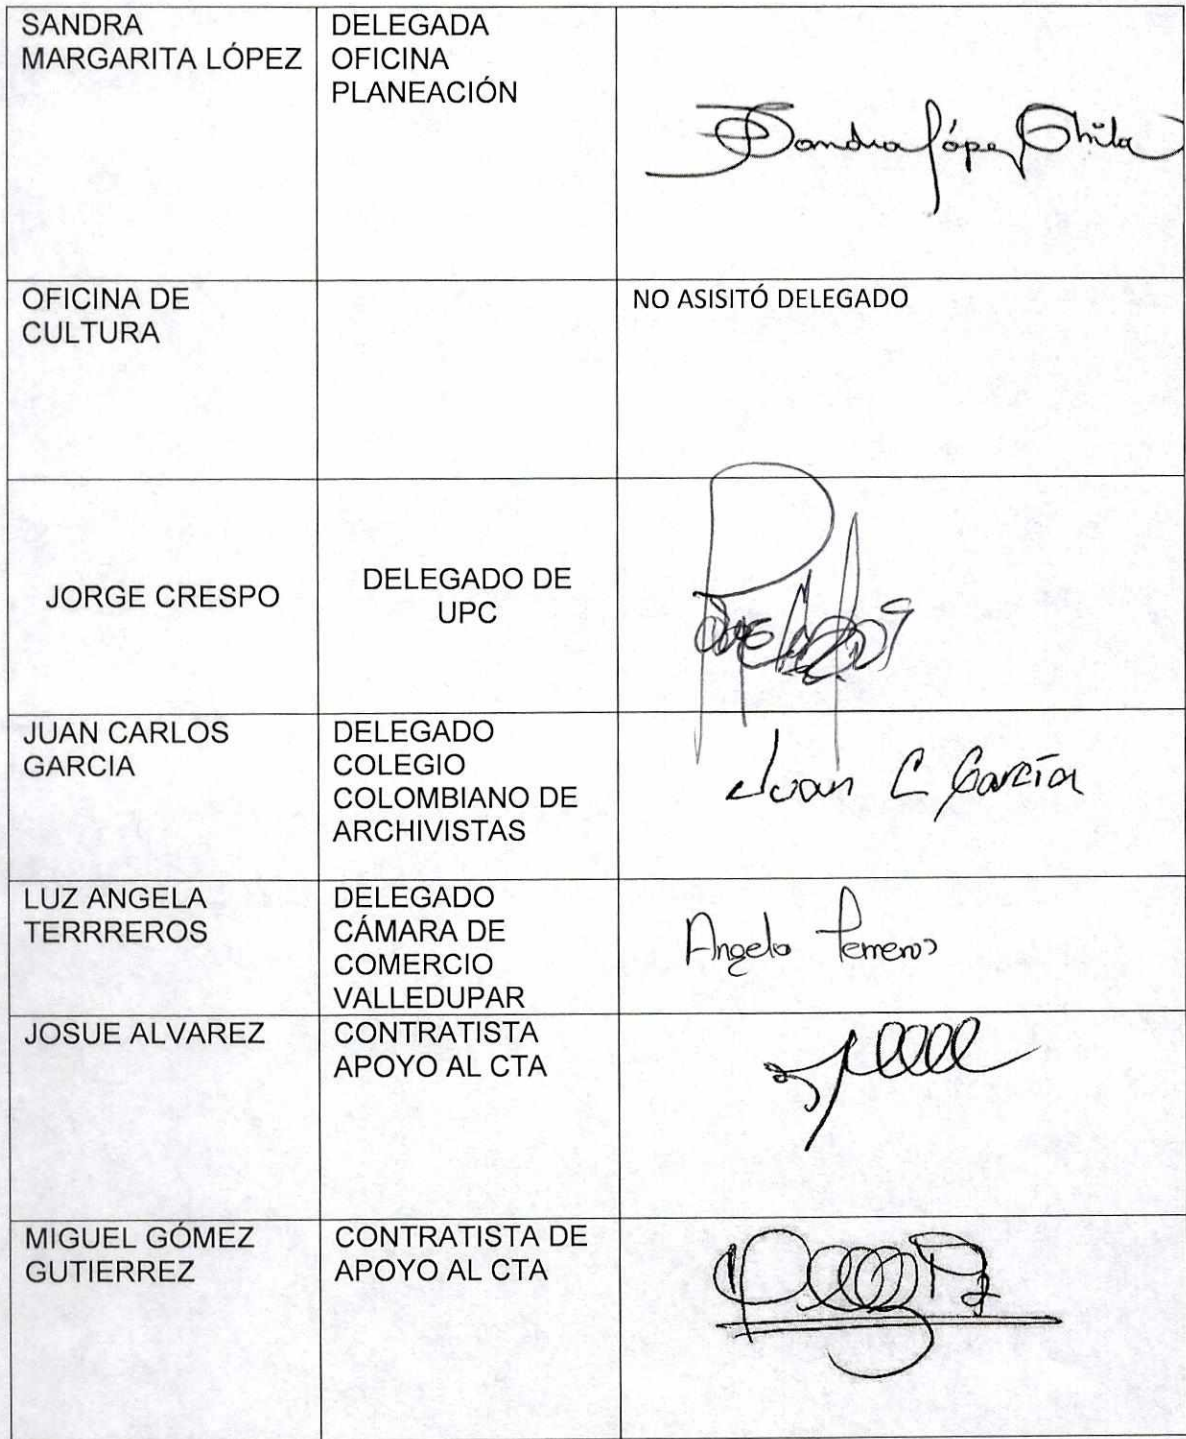 SANDRA
MARGARITA LÓPEZ
DELEGADA
OFICINA
PLANEACIÓN
Sandra López Chila
OFICINA DE
CULTURA
NO ASISITÓ DELEGADO
JORGE CRESPO
DELEGADO DE
UPC
JUAN CARLOS
GARCIA
DELEGADO
COLEGIO
COLOMBIANO DE
ARCHIVISTAS
Juan C García
LUZ ANGELA
TERRREROS
DELEGADO
CÁMARA DE
COMERCIO
VALLEDUPAR
Angela Terreros
JOSUE ALVAREZ
CONTRATISTA
APOYO AL CTA
MIGUEL GÓMEZ
GUTIERREZ
CONTRATISTA DE
APOYO AL CTA